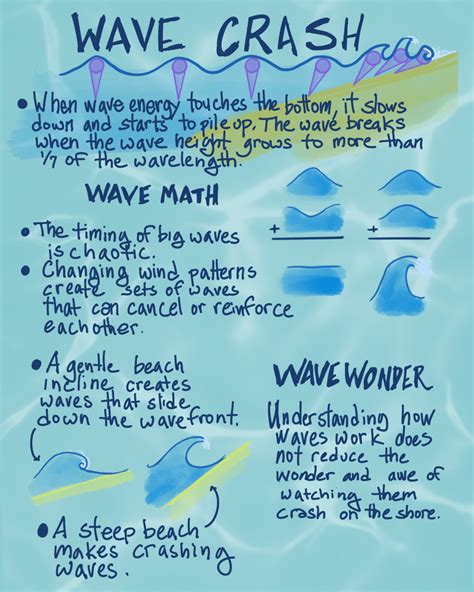 WAVE CRASH
• When wave energy touches the bottom, it slows
down and starts to pile up. The wave breaks
when the wave height grows to more than
1/7 of the wavelength.
WAVE MATH
• The timing of big waves
is chaotic.
• Changing wind patterns
create sets of waves
that can cancel or reinforce
each other.
+
+
• A gentle beach
incline creates
waves that slide
down the wavefront.
• A steep beach
makes crashing
waves.
WAVE WONDER
Understanding how
waves work does
not reduce the
wonder and awe of
watching them
crash on the shore.